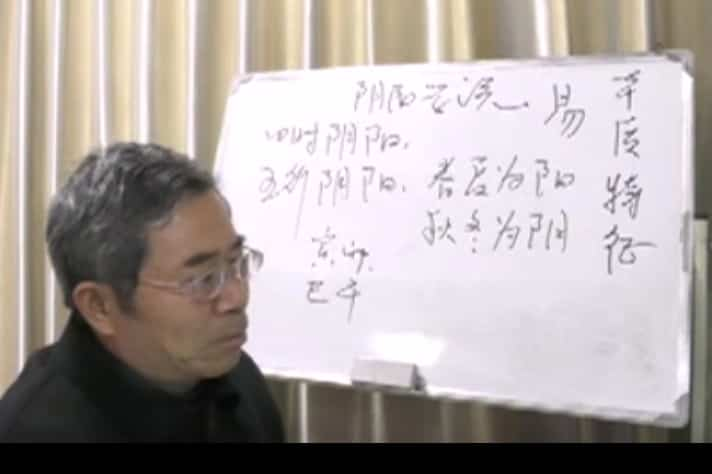 阴阳学说、易
四时阴阳,
五行阴阳, 春夏为阳
秋冬为阴
寅卯,
巳午
本质特征